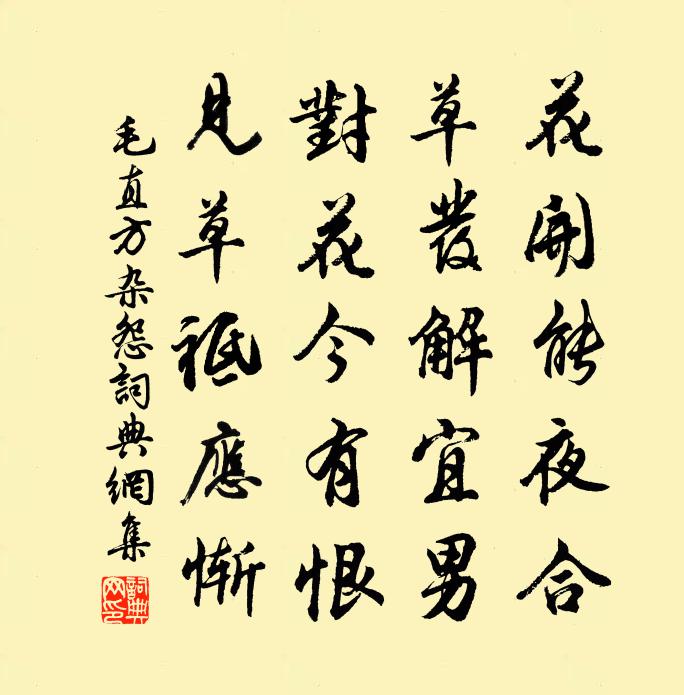 花開能夜合
草發解宜男
對花今有恨
見草祗應慚
毛直方杂怨詞典網集
詞典网印